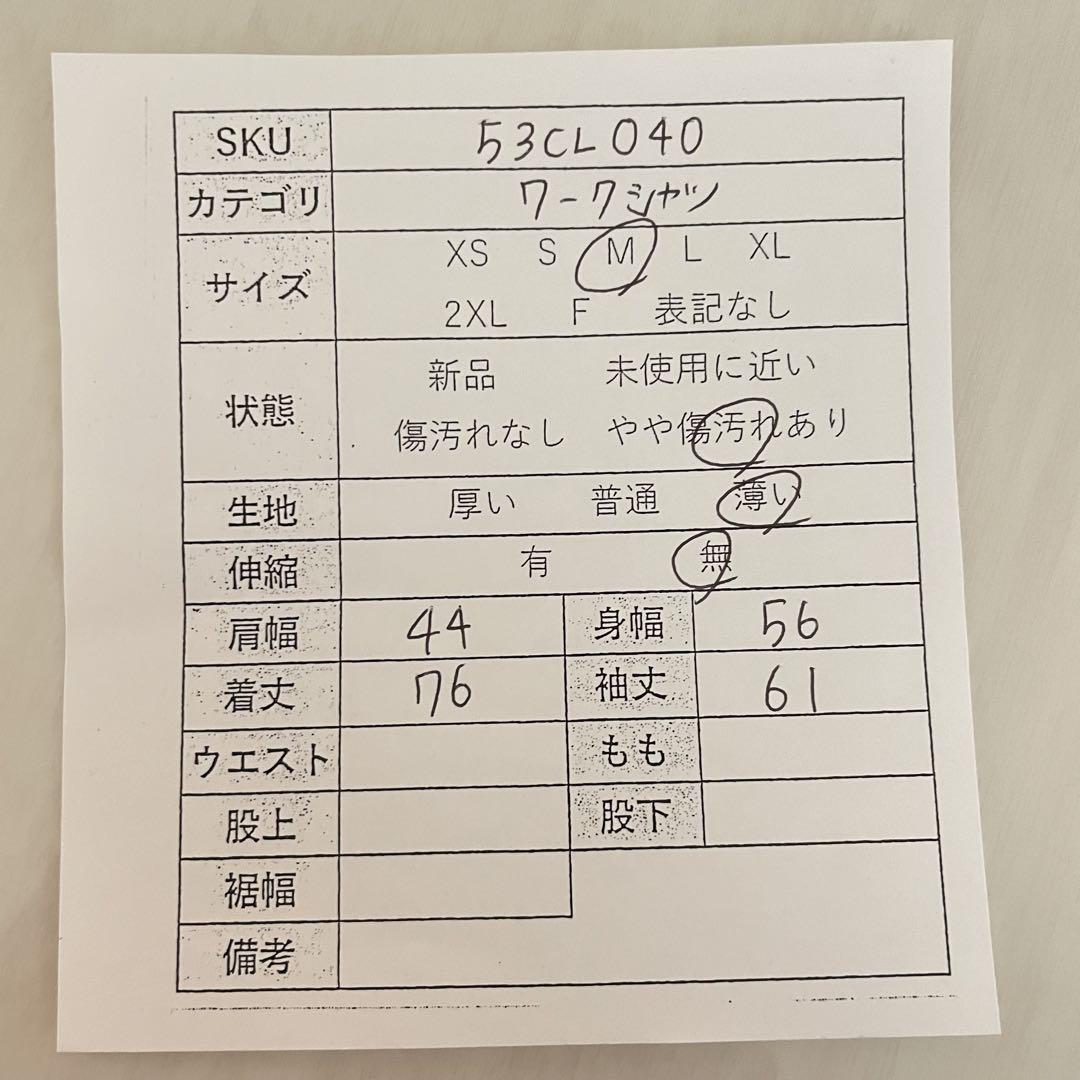 SKU 53CL040
カテゴリ ワークシャツ
サイズ XS S M L XL
2XL F 表記なし
状態 新品 未使用に近い
傷汚れなし やや傷汚れあり
生地 厚い 普通 薄い
伸縮 有 無
肩幅 44 身幅 56
着丈 76 袖丈 61
ウエスト もも
股上 股下
裾幅
備考